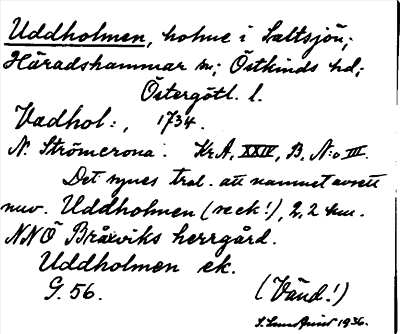 Uddholmen, holme i Saltsjön;
Häradshammar sn; Östkinds hd;
Östergötl. l.
Vadhol:, 1734.
N. Strömcrona. Kr.A, XXIV, B, N:o III.
Det synes trol. att namnet avsett
nuv. Uddholmen (reck!), 2,2 km.
NNÖ Bråviks herrgård.
Uddholmen ek.
G. 56.
(Vänd!)
1936.